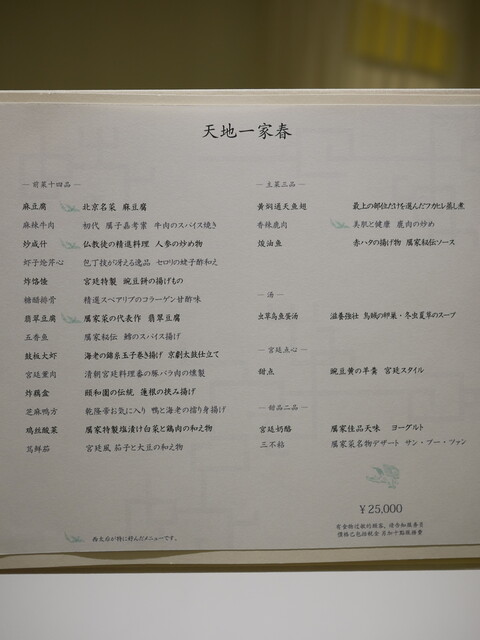 天地一家春
― 前菜十四品 ―
麻豆腐 北京名菜 麻豆腐
麻辣牛肉 初代 厲子嘉考案 牛肉のスパイス焼き
炒咸什 仏教徒の精進料理 人参の炒め物
虾子烩芹心 包丁技が冴える逸品 セロリの蝦子酢和え
炸烙馇 宮廷特製 豌豆餅の揚げもの
糖醋排骨 精選スペアリブのコラーゲン甘酢味
翡翠豆腐 厲家菜の代表作 翡翠豆腐
五香鱼 厲家秘伝 鱈のスパイス揚げ
鼓板大虾 海老の錦糸玉子巻き揚げ 京劇太鼓仕立て
宮廷熏肉 清朝宮廷料理番の豚バラ肉の燻製
炸藕盒 頤和園の伝統 蓮根の挟み揚げ
芝麻鸭方 乾隆帝お気に入り 鴨と海老の摺り身揚げ
鸡丝酸菜 厲家特製塩漬け白菜と鶏肉の和え物
篤鲜茄 宮廷風 茄子と大豆の和え物
西太后が特に好んだメニューです。
― 主菜三品 ―
黄焖通天鱼翅 最上の部位だけを選んだフカヒレ蒸し煮
香辣鹿肉 美肌と健康 鹿肉の炒め
烧油鱼 赤ハタの揚げ物 厲家秘伝ソース
― 汤 ―
虫草乌鱼蛋汤 滋養強壮 烏賊の卵巣・冬虫夏草のスープ
― 宮廷点心 ―
甜点 豌豆黄の羊羹 宮廷スタイル
― 甜品二品 ―
宮廷奶酪 厲家佳品天味 ヨーグルト
三不粘 厲家菜名物デザート サン・ブー・ツァン
￥25,000